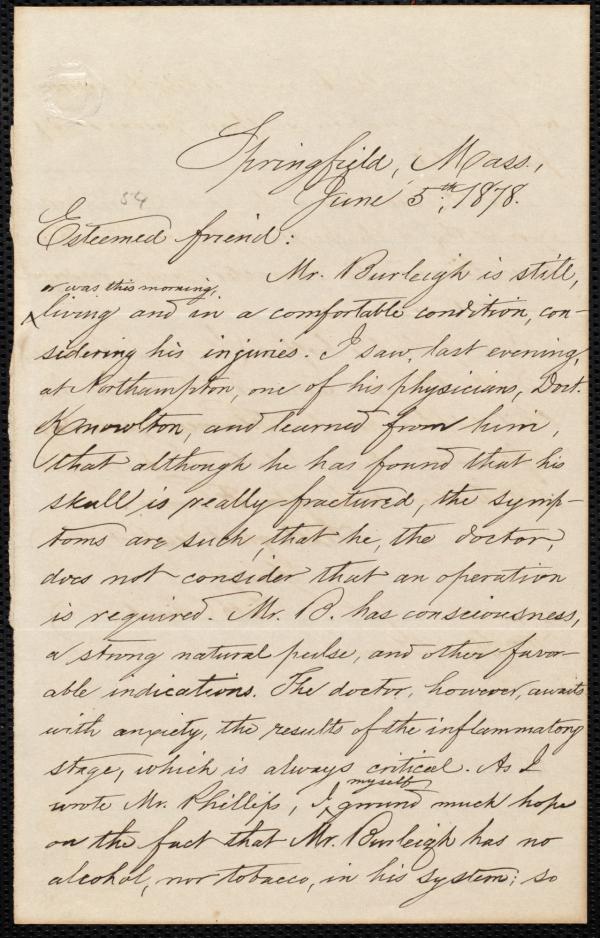 Springfield, Mass.,
June 5th, 1878.
54
Esteemed friend:
Mr. Burleigh is still,
or was this morning,
living and in a comfortable condition, con-
sidering his injuries. I saw, last evening,
at Northampton, one of his physicians, Doct.
Knowlton, and learned from him,
that although he has found that his
skull is really fractured, the symp-
toms are such, that he, the doctor,
does not consider that an operation
is required. Mr. B. has consciousness,
a strong natural pulse, and other favor-
able indications. The doctor, however, awaits
with anxiety, the results of the inflammatory
stage, which is always critical. As I
myself
wrote Mr. Phillips, I ground much hope
on the fact that Mr. Burleigh has no
alcohol, nor tobacco, in his system; so